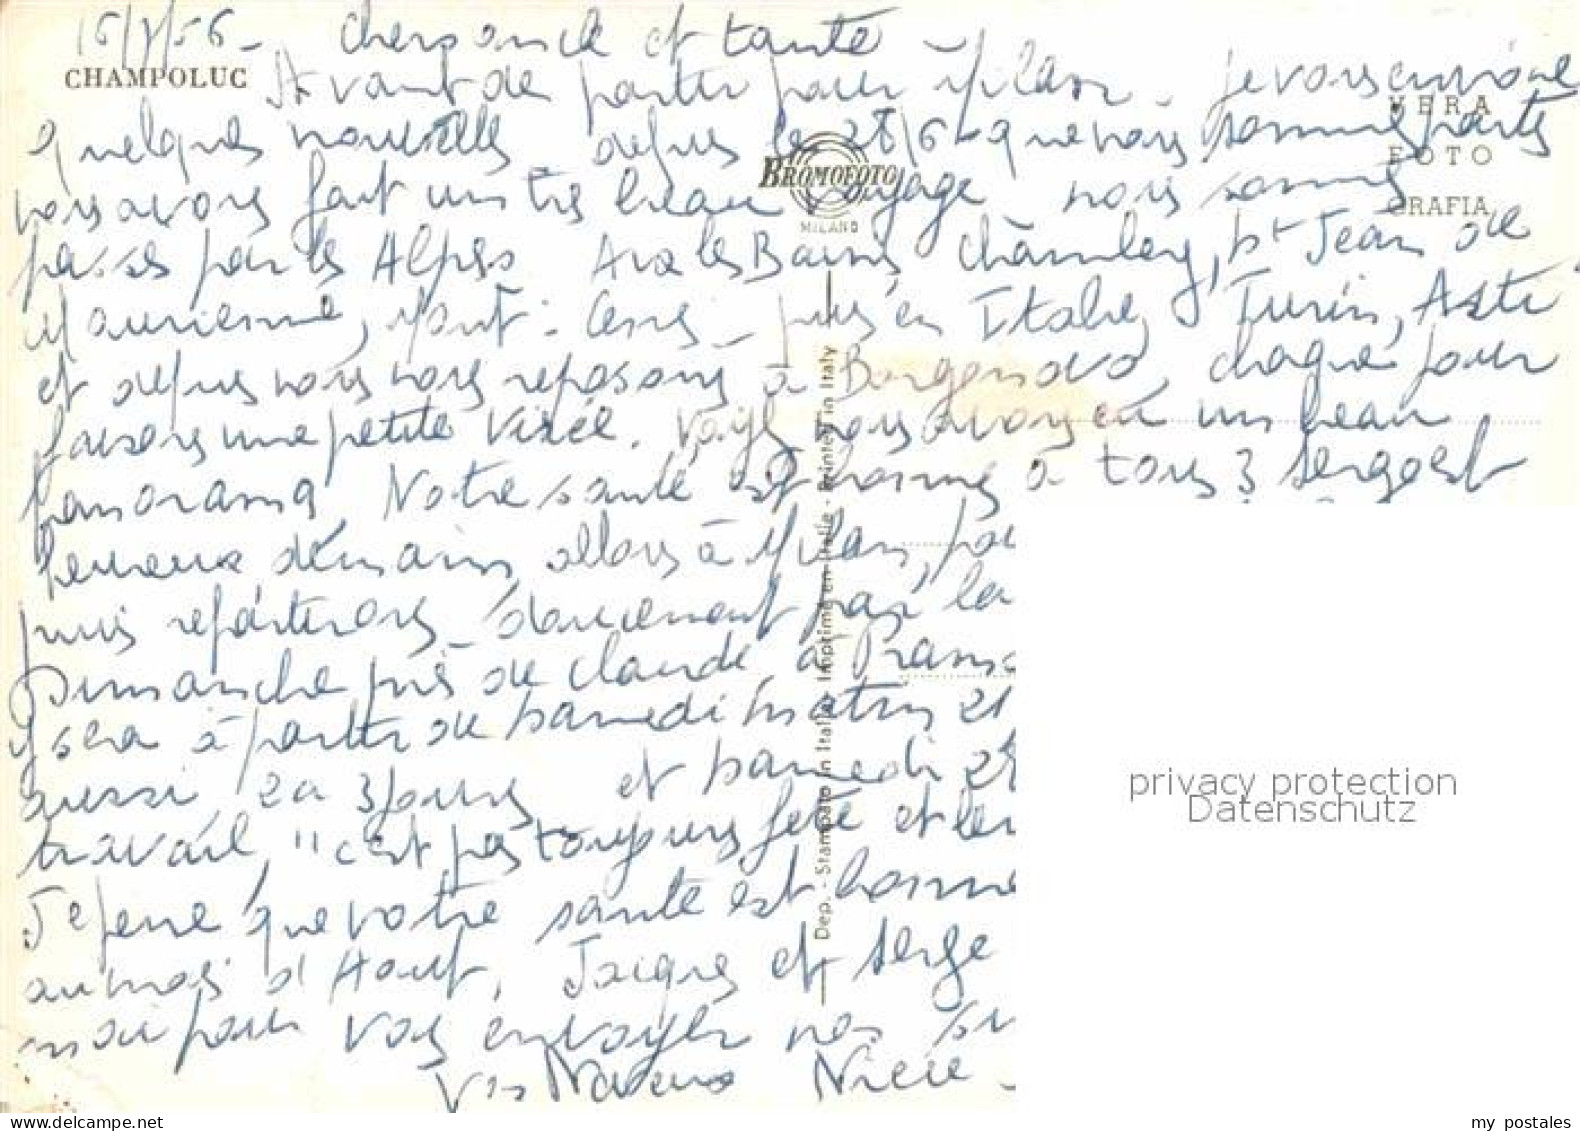 16/7/56 - cher oncle et tante -
CHAMPOLUC
Avant de partir pour Milan - je vous envoie
VERA
quelques nouvelles depuis le 28/6 que nous sommes partis
FOTO
BROMOFOTO
MILANO
nous avons fait un très beau voyage nous sommes
GRAFIA
passés par les Alpes Aix les Bains Chambery, St Jean de
Maurienne, Mont-Cenis - puis en Italie, Turin, Asti
et depuis nous nous reposons à Borgonovo, chaque jour
faisons une petite virée. nous avons eu un beau
panorama Notre santé est bonne à tous 3 Serge est
heureux demain allons à Milan,
puis repartirons - doucement par la
Dimanche près de Claude à
sera à partir du samedi matin 21
aussi 2 a 3 jours et samedi 28
travail, "c'est pas toujours fete et
J'espère que votre santé est bonne
au mois d'Août, Jacques et Serge
moi pour vous envoyer nos
Vos Neveux Niece -
Dep. - Stampato in Italia - Imprimé en Italie - Printed in Italy
privacy protection
Datenschutz
my postales